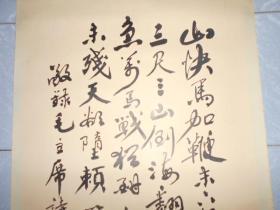 山快馬加鞭未下
三尺三山倒海翻
急萬馬戰猶酣
未殘天欲墮賴
敬録毛主席詩